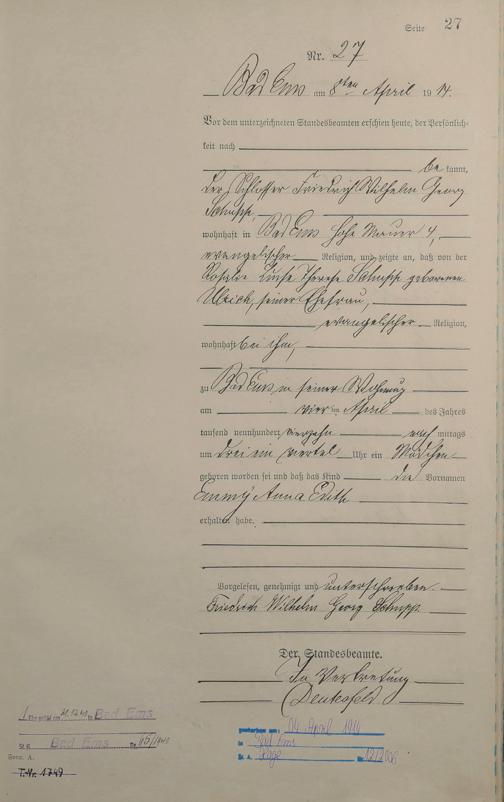 Seite 27
Nr. 27
Bad Ems am 8ten April 19 14.
Vor dem unterzeichneten Standesbeamten erschien heute, der Persönlich-
keit nach
be kannt,
der Schlosser Friedrich Wilhelm Georg
Schupp,
wohnhaft in Bad Ems Hohe Mauer 4,
evangelischer Religion, und zeigte an, daß von der
Rosalie Luise Therese Schupp geborenen
Ulrich, seiner Ehefrau,
evangelischer Religion,
wohnhaft bei ihm,
zu Bad Ems in seiner Wohnung
am vier ten April des Jahres
tausend neunhundert vierzehn nach mittags
um drei ein viertel Uhr ein Mädchen
geboren worden sei und daß das Kind die Vornamen
Emmy Anna Edith
erhalten habe.
Vorgelesen, genehmigt und unterschrieben.
Friedrich Wilhelm Georg Schupp
Der Standesbeamte.
In Vertretung
Bad Ems
St. A. Bad Ems Nr.
Form. A.
T.Nr. 1749
gestorben am: April
in Bad Ems
St. A. Nr.